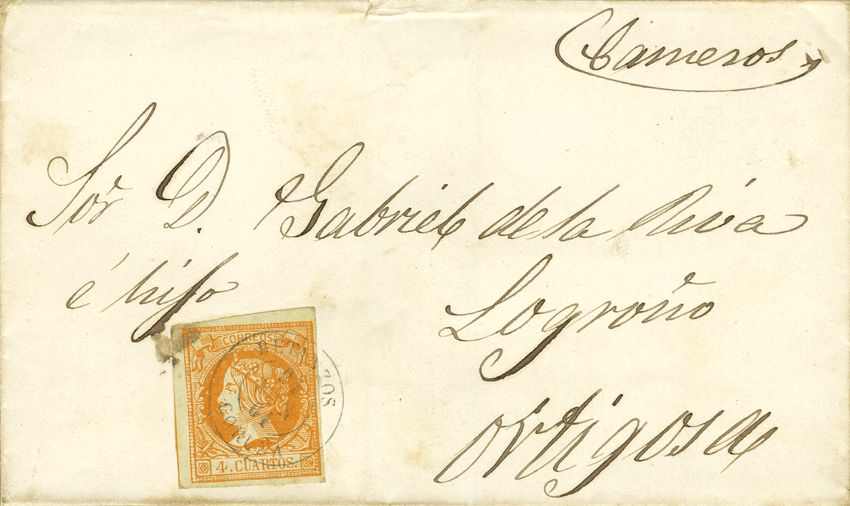 Cameros
Sor D. Gabriel de la Riva
é hijo
Logroño
Ortigosa
CORREOS
BETANZOS
CORUÑA
4. CUARTOS.